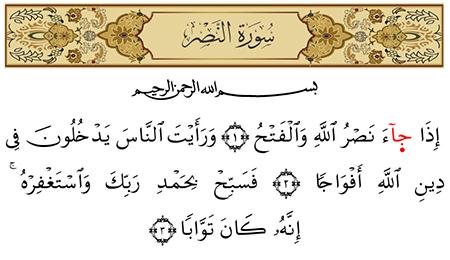 سُورَةُ النَّصْرِ
بسم الله الرحمن الرحيم
إِذَا جَآءَ نَصْرُ ٱللَّهِ وَٱلْفَتْحُ ۝١ وَرَأَيْتَ ٱلنَّاسَ يَدْخُلُونَ فِى
دِينِ ٱللَّهِ أَفْوَاجًا ۝٢ فَسَبِّحْ بِحَمْدِ رَبِّكَ وَٱسْتَغْفِرْهُ ۚ
إِنَّهُۥ كَانَ تَوَّابًۢا ۝٣